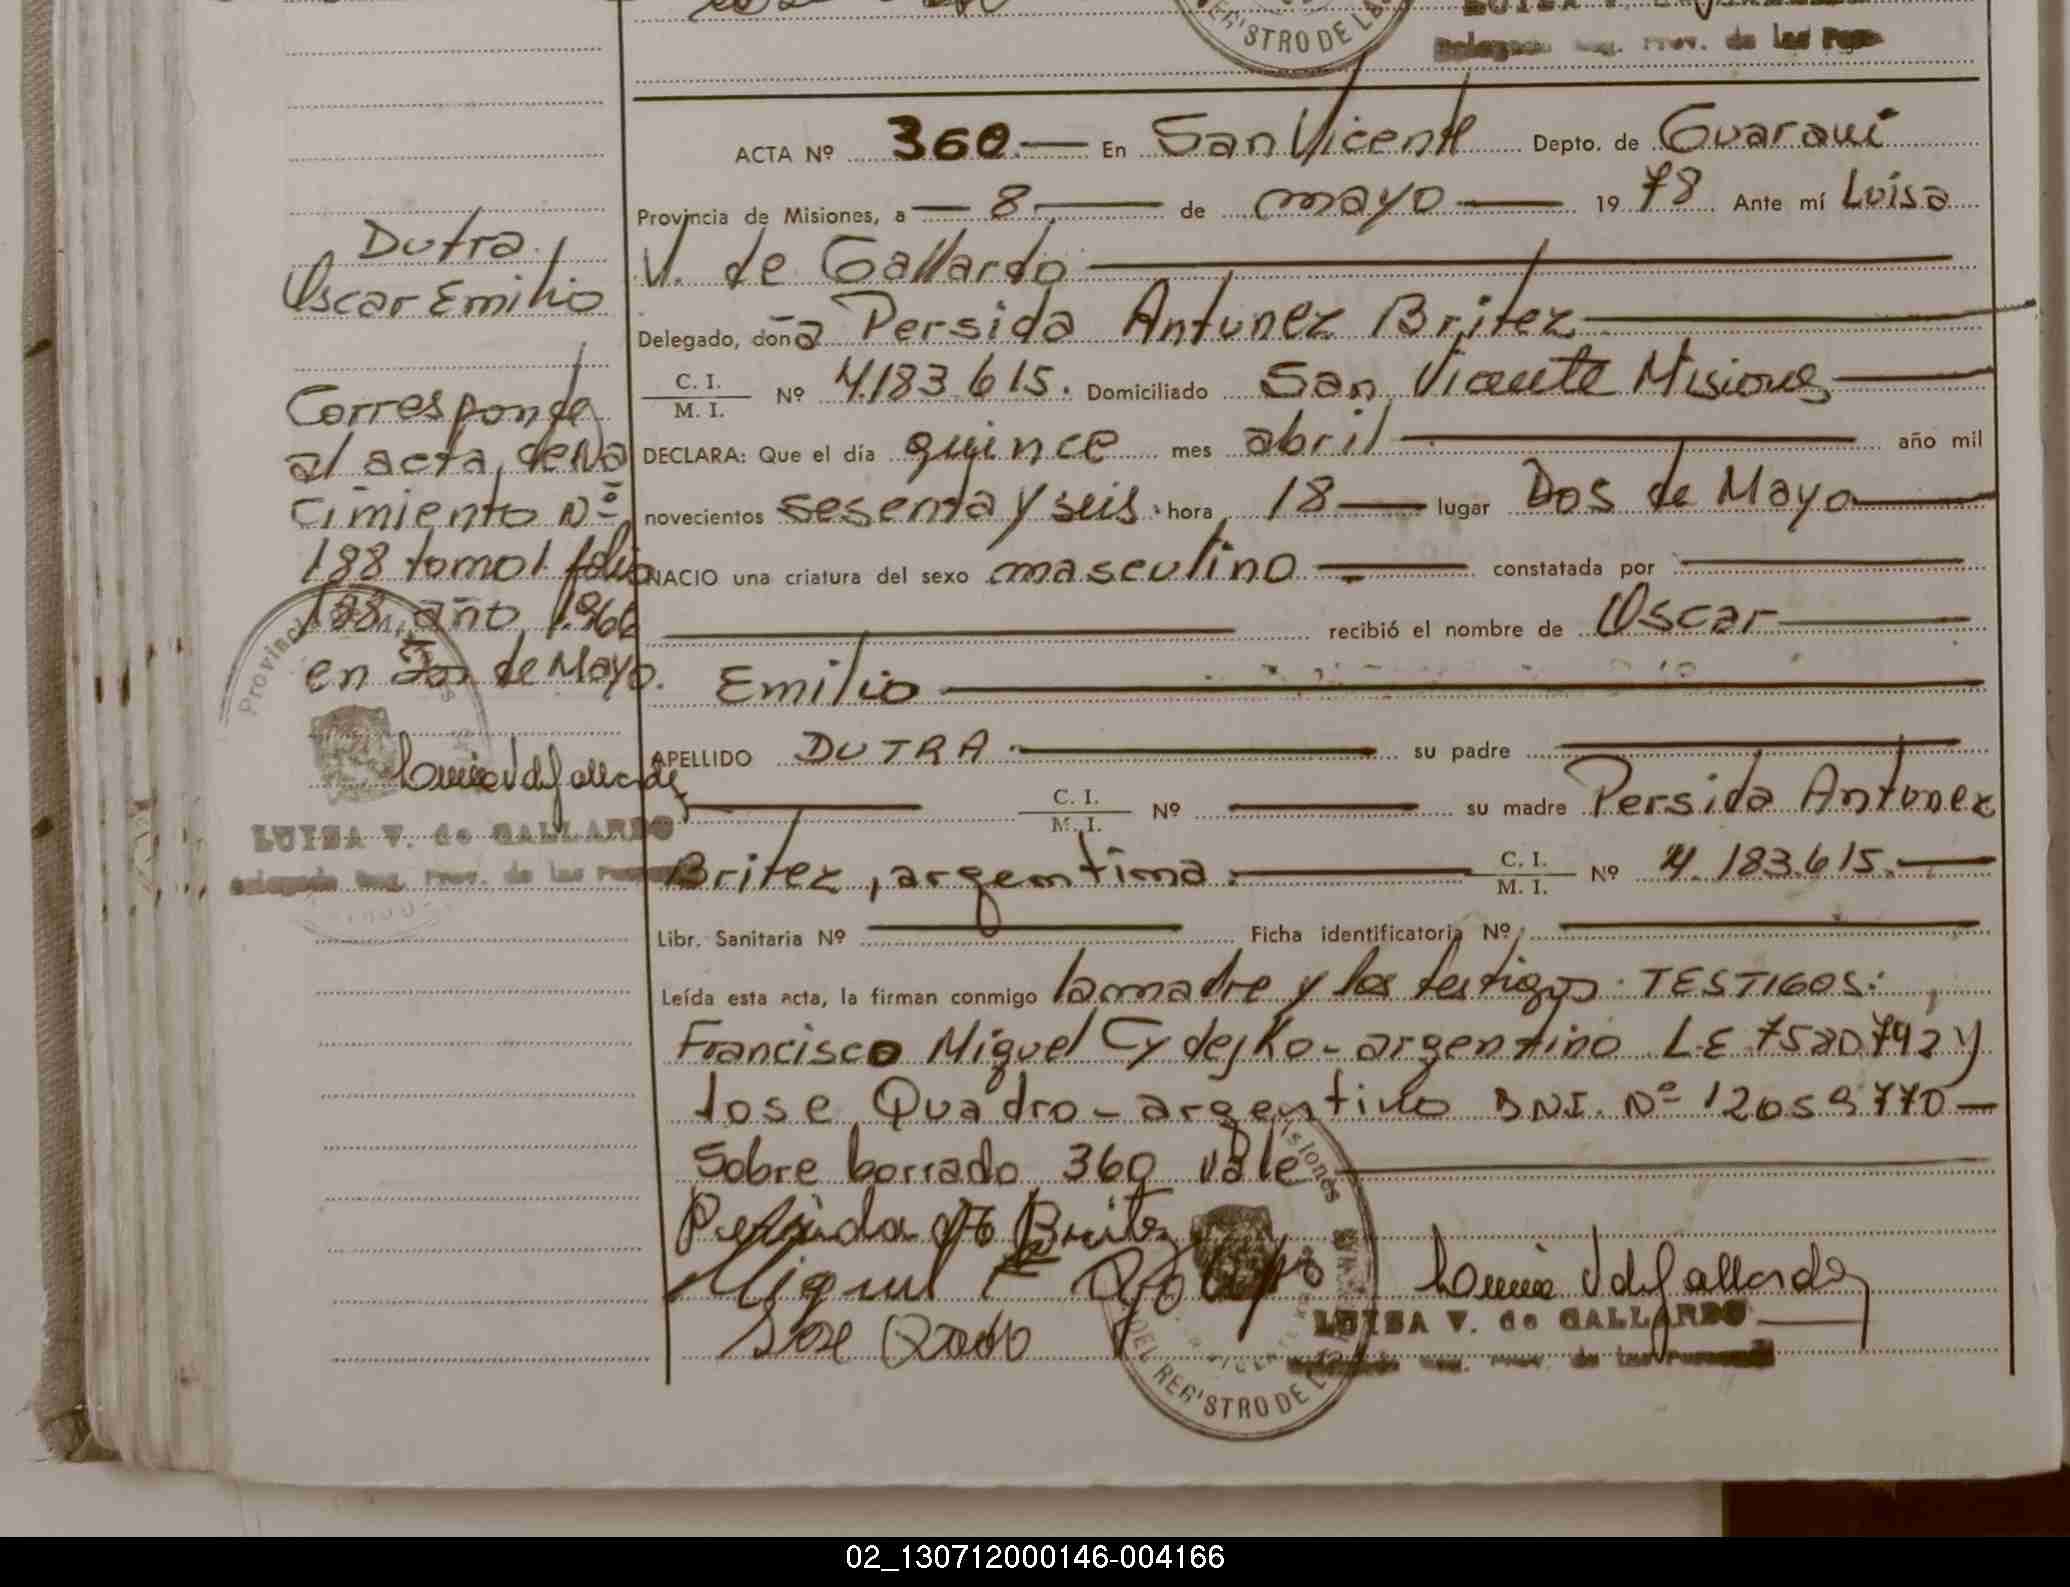 REGISTRO DE LA
Delegado Reg. Prov. de las Pers
ACTA Nº 360.— En San Vicente Depto. de Guaraní
Provincia de Misiones, a — 8 — de mayo — 19 78 Ante mí Luisa
V. de Gallardo
Delegado, doña Persida Antunez Britez
C. I. / M. I. Nº 4.183.615. Domiciliado San Vicente Misiones
DECLARA: Que el día quince mes abril año mil
novecientos sesenta y seis. hora 18 lugar Dos de Mayo
NACIO una criatura del sexo masculino constatada por
recibió el nombre de Oscar
Emilio
APELLIDO DUTRA su padre
C. I. / M. I. Nº su madre Persida Antunez
Britez, argentina. C. I. / M. I. Nº 4.183.615.
Libr. Sanitaria Nº Ficha identificatoria Nº
Leída esta acta, la firman conmigo la madre y los testigos. TESTIGOS:
Francisco Miguel Cydejko - argentino L.E 7520792 y
Jose Quadro - argentino DNI. Nº 12059770 —
Sobre borrado 360 vale
Persida A Britez
Miguel F
Jose Quadro
Luisa V de Gallardo
LUISA V. de GALLARDO
DEL REGISTRO DE L
Dutra
Oscar Emilio
Corresponde
al acta de Na
cimiento Nº
188 tomo 1 folio
188, año 1.966
en Dos de Mayo.
Provincia
Luisa V de Gallardo
LUISA V. de GALLARDO
Delegado Reg. Prov. de las Personas
02_130712000146-004166